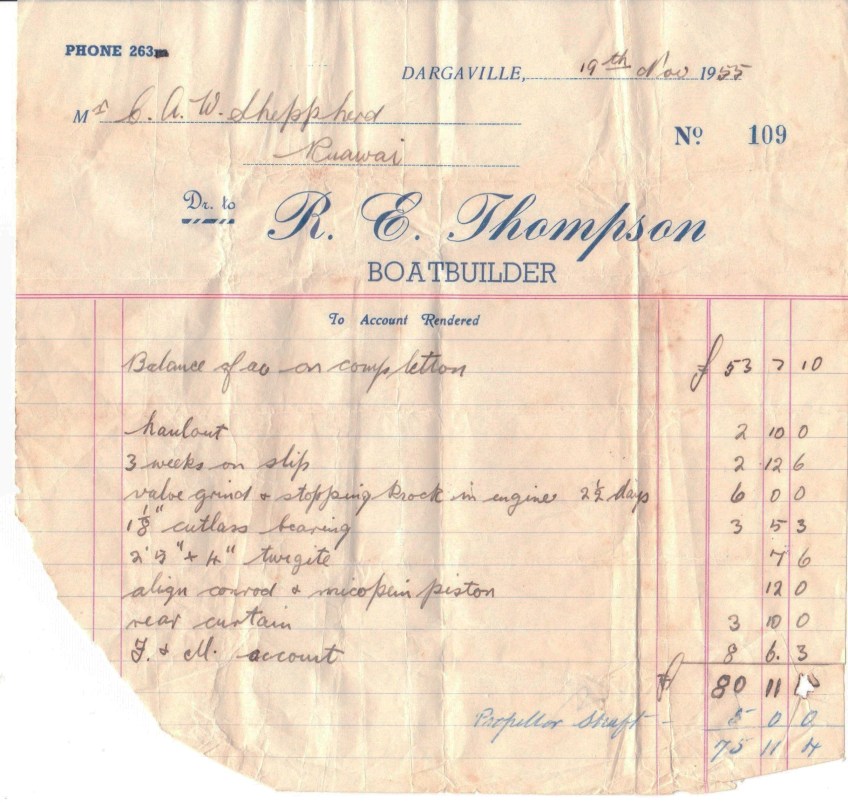 PHONE 263m
DARGAVILLE, 19th Nov 1955
Mr C. A. W. Sheppherd
Ruawai
No 109
Dr. to
R. E. Thompson
BOATBUILDER
To Account Rendered
Balance of ac on completion £ 53 7 10
haulout 2 10 0
3 weeks on slip 2 12 6
valve grind & stopping knock in engine 2½ days 6 0 0
1⅛" cutlass bearing 3 5 3
7 6
align conrod & piston 12 0
rear curtain 3 10 0
F. & M. account 8 6. 3
£ 80 11
Propellor Shaft - 5 0 0
75 11 4